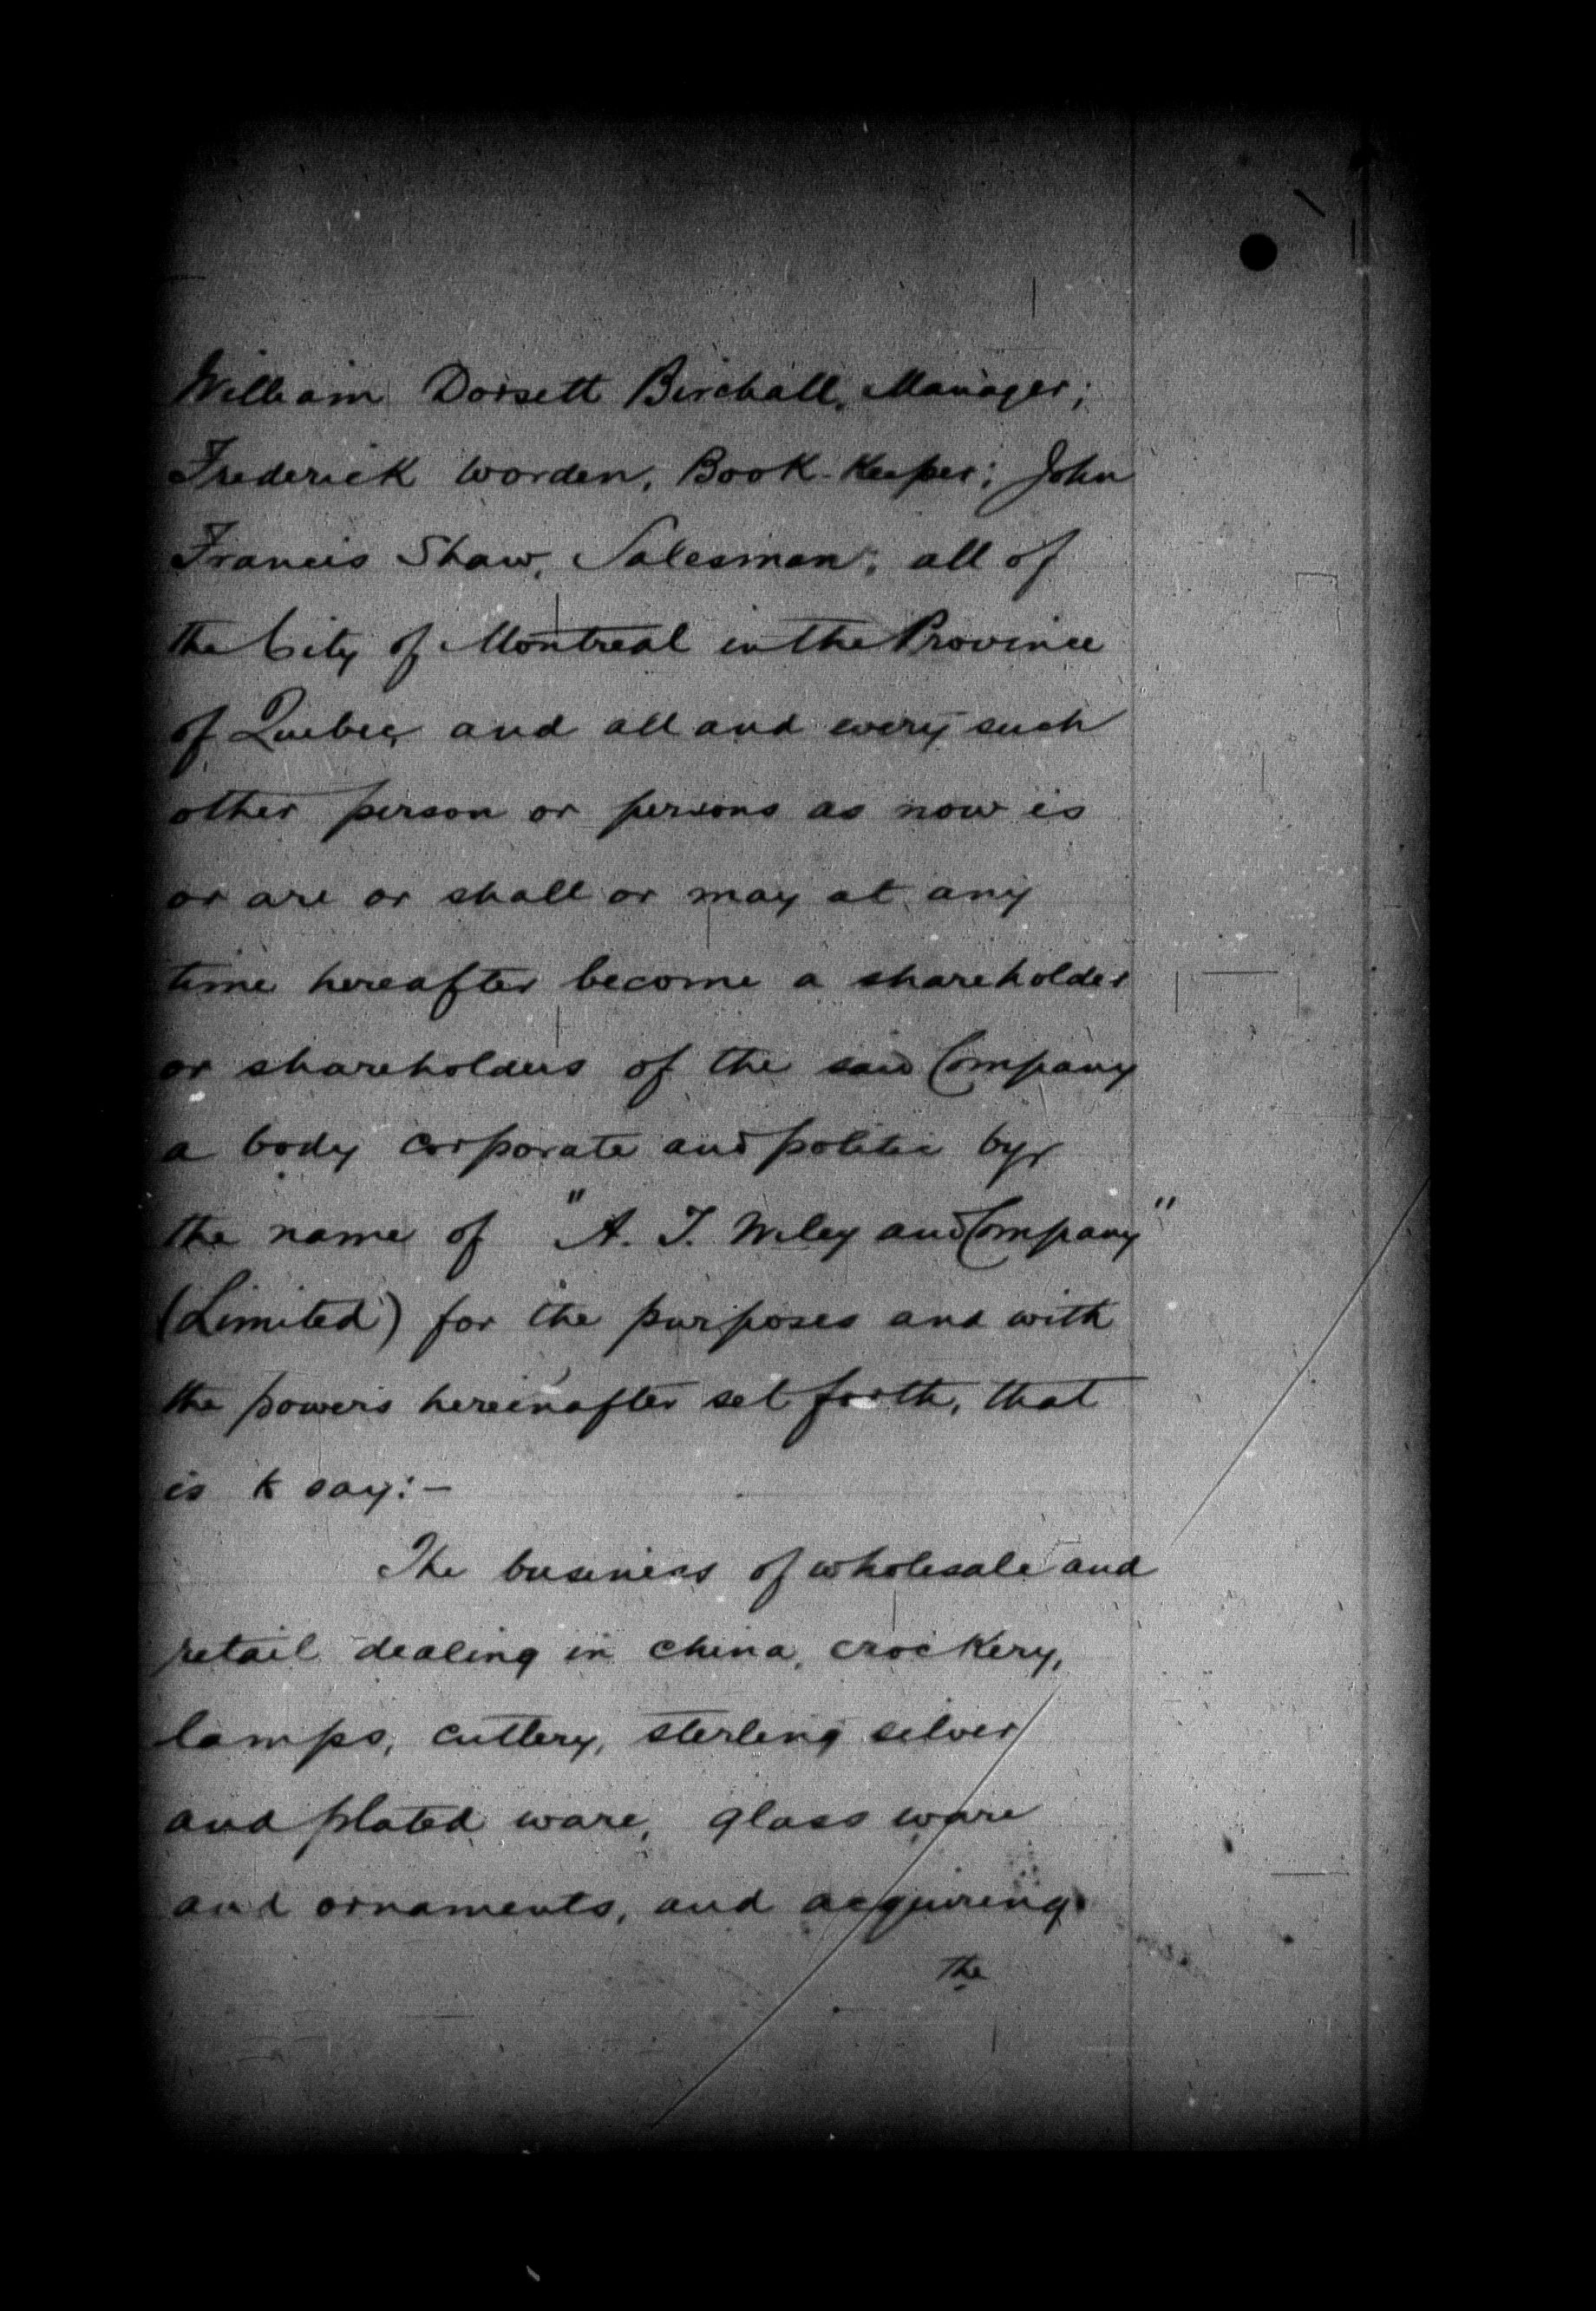 William Dorsett Birchall, Manager;
Frederick Worden, Book-Keeper; John
Francis Shaw, Salesman; all of
the City of Montreal in the Province
of Quebec, and all and every such
other person or persons as now is
or are or shall or may at any
time hereafter become a shareholder
or shareholders of the said Company
a body corporate and politic by
the name of "A. T. Wiley and Company"
(Limited) for the purposes and with
the powers hereinafter set forth, that
is to say:-
The business of wholesale and
retail dealing in china, crockery,
lamps, cutlery, sterling silver
and plated ware, glass ware
and ornaments, and acquiring
the